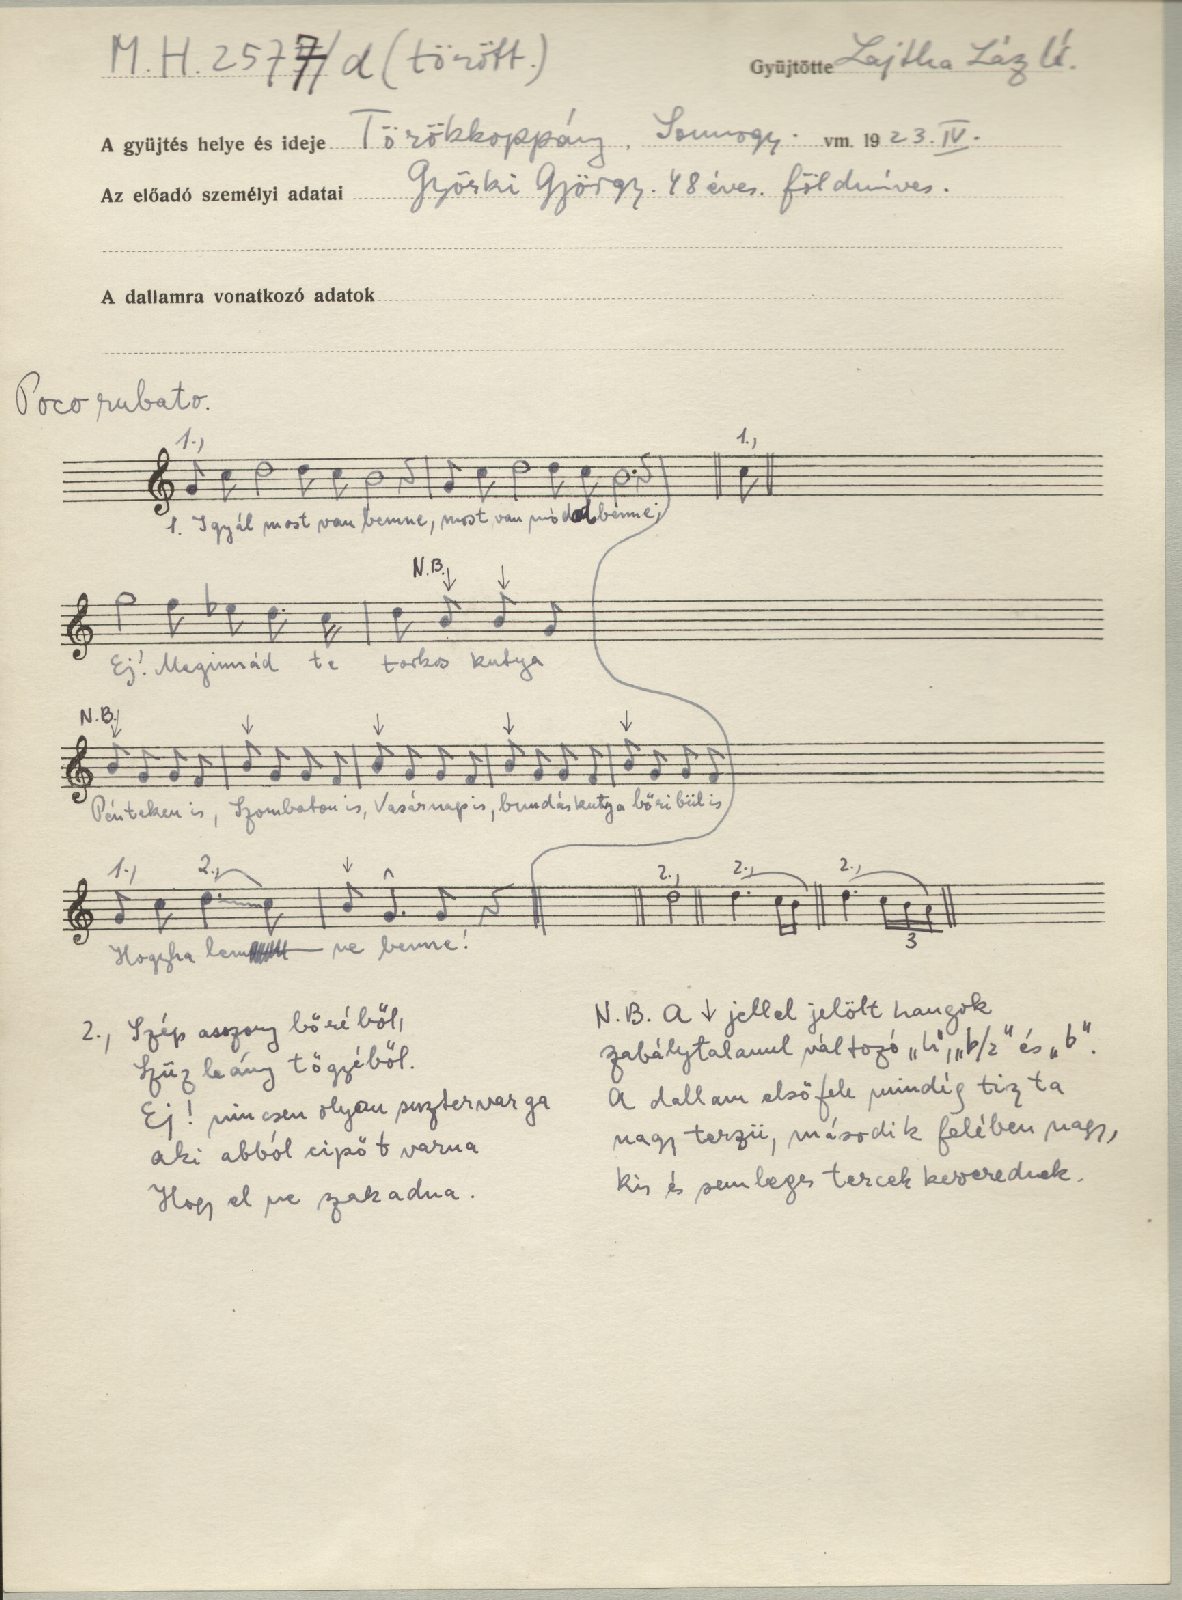 M. H. 2577/d (törött.)
Gyüjtötte Lajtha László.
A gyüjtés helye és ideje Törökkoppány, Somogy. vm. 1923. IV.
Az előadó személyi adatai Györki György. 48 éves. földmives.
A dallamra vonatkozó adatok
Poco rubato.
1., 1.,
1. Igyál most van benne, most van módod benne,
N.B.
Ej! Meginnád te torkos kutya
N.B.
Pénteken is, Szombaton is, Vasárnap is, bundáskutya bőribül is
1., 2., 2., 2., 2.,
Hogyha lenne benne!
3
2., Szép asszony bőréből,
Szűz leány tőgyéből.
Ej! nincsen olyan susztervarga
aki abból cipőt varna
Hogy el ne szakadna.
N.B. A ↓ jellel jelölt hangok
zabálytalanul változó „h", „b/2" és „b".
A dallam elsőfele mindég tiszta
nagy terzü, második felében nagy,
kis és semleges tercek keverednek.